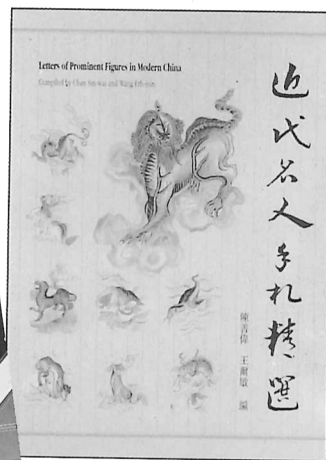 Letters of Prominent Figures in Modern China
Compiled by Chan Sin-wai and Wang Erh-min
近代名人手札精選
陳善偉 王爾敏 編